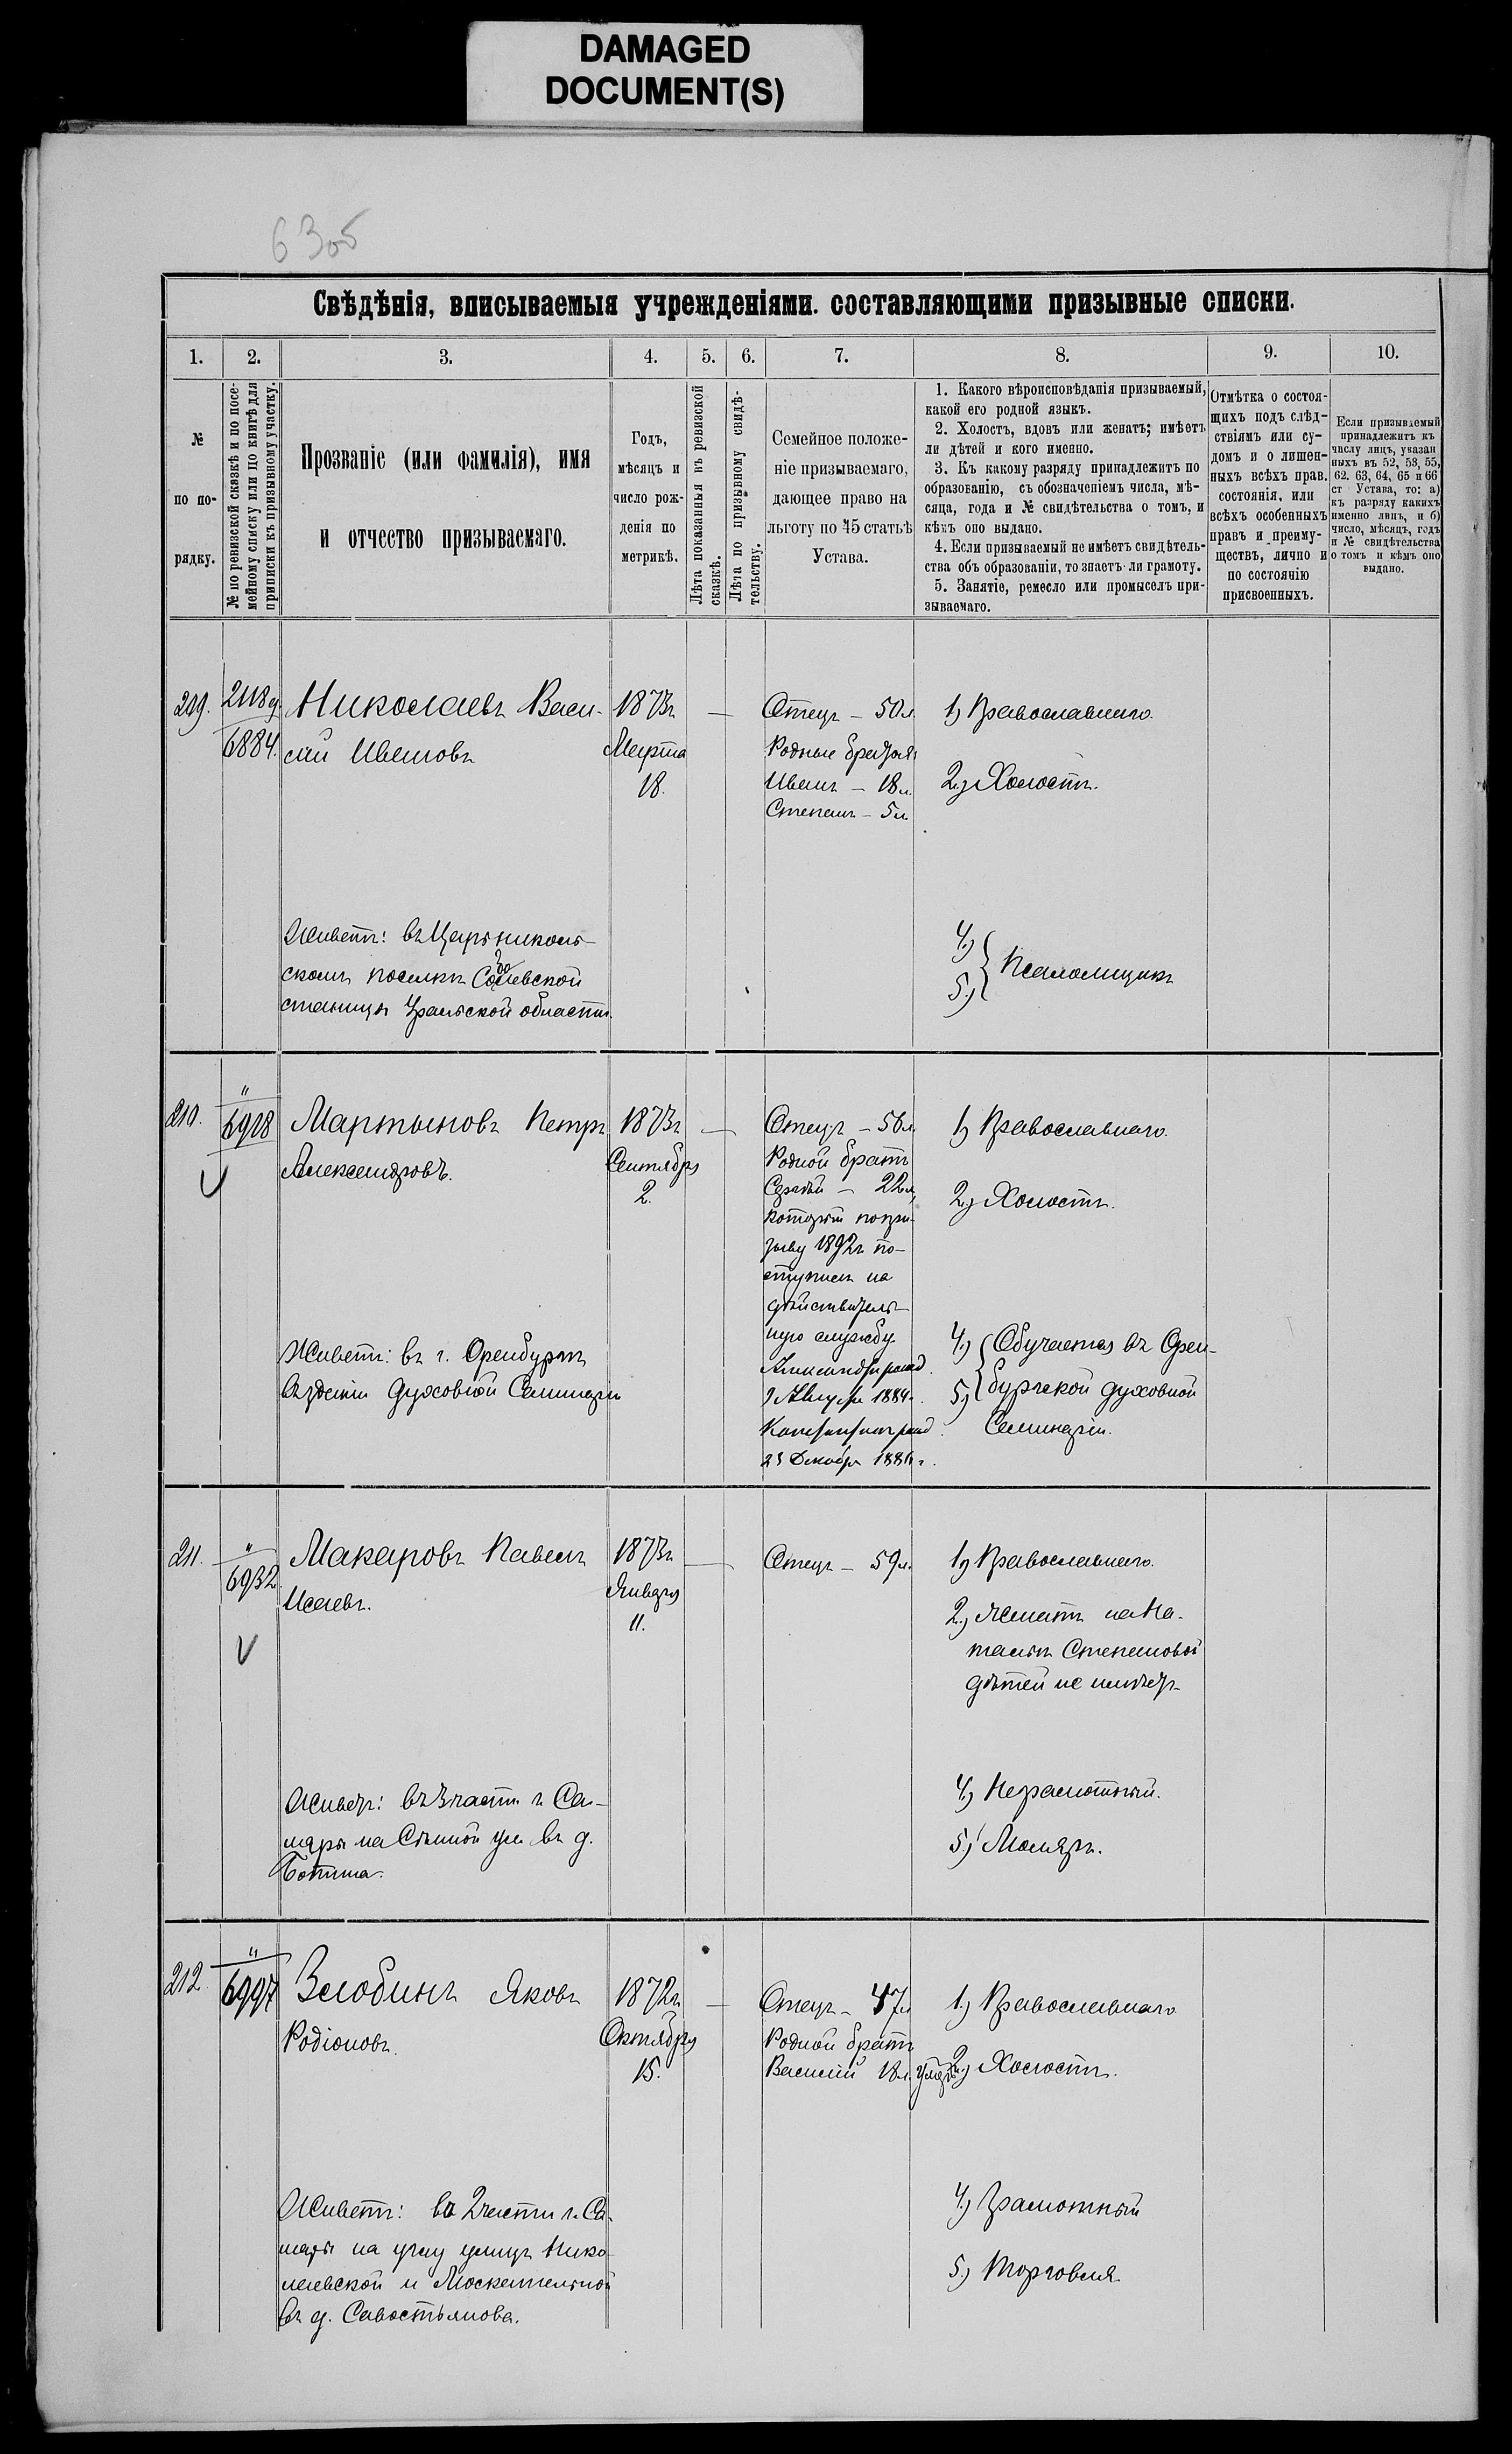 DAMAGED
DOCUMENT(S)
Свѣдѣнія, вписываемыя учрежденіями. составляющими призывные списки.
1. 2. 3. 4. 5. 6. 7. 8. 9. 10.
№
по по-
рядку.
№ по ревизской сказкѣ и по посе-
мейному списку или по книгѣ для
приписки къ призывному участку.
Прозваніе (или фамилія), имя
и отчество призываемаго.
Годъ,
мѣсяцъ и
число рож-
денія по
метрикѣ.
Лѣта показанныя къ ревизской
сказкѣ.
Лѣта по призывному свидѣ-
тельству.
Семейное положе-
ніе призываемаго,
дающее право на
льготу по 45 статьѣ
Устава.
1. Какого вѣроисповѣданія призываемый,
какой его родной языкъ.
2. Холостъ, вдовъ или женатъ; имѣетъ
ли дѣтей и кого именно.
3. Къ какому разряду принадлежитъ по
образованію, съ обозначеніемъ числа, мѣ-
сяца, года и № свидѣтельства о томъ, и
кѣмъ оно выдано.
4. Если призываемый не имѣетъ свидѣтель-
ства объ образованіи, то знаетъ-ли грамоту.
5. Занятіе, ремесло или промыселъ при-
зываемаго.
Отмѣтка о состоя-
щихъ подъ слѣд-
ствіямъ или су-
домъ и о лишен-
ныхъ всѣхъ прав.
состоянія, или
всѣхъ особенныхъ
правъ и преиму-
ществъ, лично и
по состоянію
присвоенныхъ.
Если призываемый
принадлежитъ къ
числу лицъ, указан
ныхъ въ 52, 53, 55,
62. 63, 64, 65 и 66
ст Устава, то: а)
къ разряду какихъ
именно лицъ, и б)
число, мѣсяцъ, годъ
и № свидѣтельства
о томъ и кѣмъ оно
выдано.
209.
6884.
Николаевъ Васи-
лій Ивановъ
1873г
Марта
18.
—
Отецъ – 50л
Родные братья
Иванъ – 18л.
Степанъ – 5л
1) Православнаго.
2) Холостъ.
Живетъ: въ Царьниколь-
скомъ поселкѣ
станицы Уральской области.
4)
5) Псаломщикъ
210.
"
6928
Мартыновъ Петръ
Александровъ.
1873г
Сентября
2.
—
Отецъ – 56л
Родной братъ
Сергѣй – 22л,
который по при-
зыву 1892г по-
ступилъ на
дѣйствитель-
ную службу
Александръ род.
9 Августа 1884г.
Константинъ род
23 Декабря 1886г.
1) Православнаго.
2) Холостъ.
Живетъ: въ г. Оренбургѣ
въ зданіи Духовной Семинаріи
4) Обучается въ Орен-
5) бургской духовной
Семинаріи.
211.
"
6932
Макаровъ Павелъ
Исаевъ.
1873г
Января
11.
—
Отецъ – 59л.
1) Православнаго.
2) Женатъ на На-
тальѣ Степановой
дѣтей не имѣетъ
Живетъ: въ 3 части г. Са-
мары на Сѣнной ул въ д.
4) Неграмотный.
5) Маляръ.
212.
"
6997
Злобинъ Яковъ
Родіоновъ.
1872г
Октября
15.
—
Отецъ – 47л
Родной братъ
Василій 18л умеръ
1) Православнаго
2) Холостъ.
Живетъ: во 2 части г. Са-
мары на углу улицъ Нико-
лаевской и Москательной
въ д. Савостьянова.
4) Грамотный
5) Торговля.